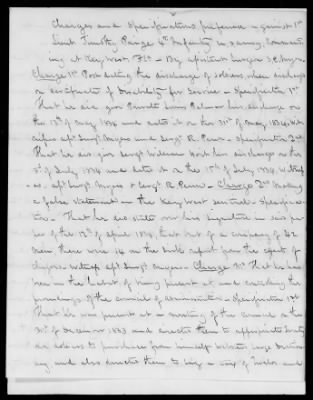 Charges and Specifications prefered against 1st
Lieut Timothy Paige 4th Infantry U.S. Army, Command
ing at Key West Fla - By assistant Surgeon
Charge 1st Post dating the discharge of soldiers when discharged
on certificate of Disability for Service - Specification 1st
That he did give Private Lewis his discharge on
the 13th of May 1834 and dated it on the 31st of May 1834, Wit
nesses asst Surgn and Sergt R. Penn - Specification 2nd
That he did give Sergt William his discharge on the
3d of July 1834 and date it on the 15th of July 1834. Witness
es. asst Surgn & Sergt R. Penn - Charge 2nd Making
a false statement in the Key West - Specifica
tion - That he did state over his signature in said pa
per of the 12th of April 1834, that out of a company of 42
men there were 14 on the sick report from the effects of
Witness asst Surgn - Charge 3d That he has
been in the habit of being present at and the
proceedings of the council of administration - Specification 1st
That he was present at a meeting of the council on the
31st of December 1833 and directed them to appropriate twenty
six dollars to purchase from himself
and also directed them to buy a box of and